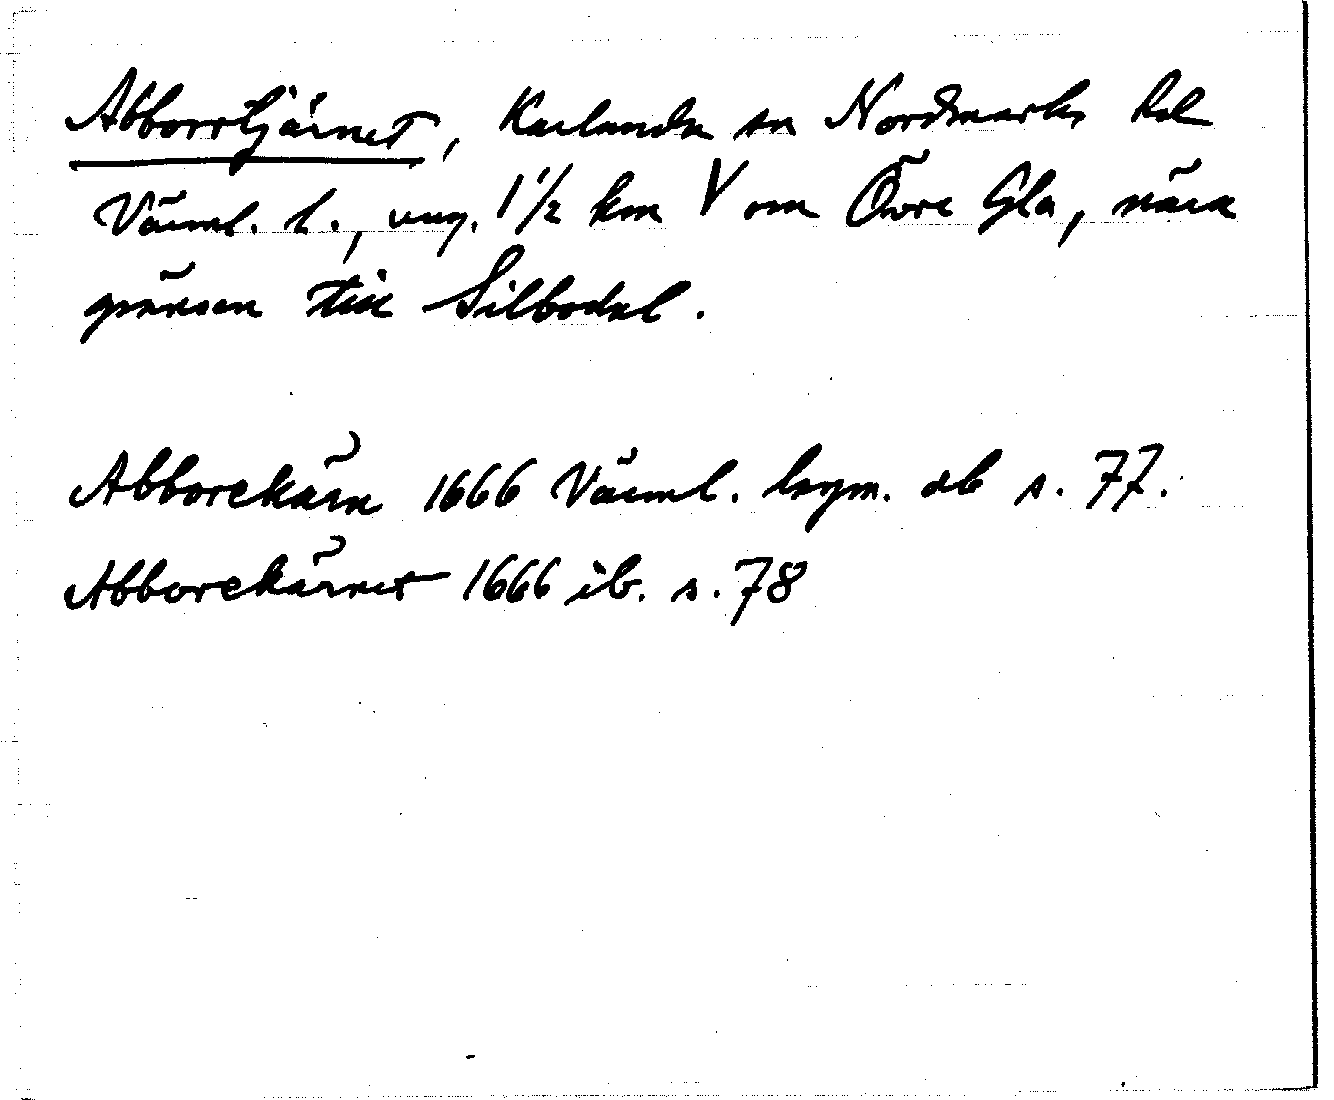 Abborrtjärnet, Karlanda sn Nordmarks hd
Värml. l., ung. 1 1/2 km V om Övre Gla, nära
gränsen till Silbodal.
Abborekärn 1666 Värml. lsgm. db s. 77.
Abborekärnet 1666 ib. s. 78